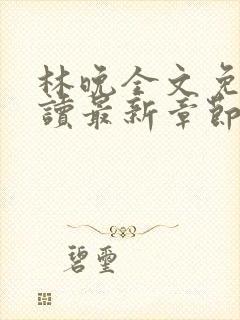 林晚全文免
讀最新章節
碧璽